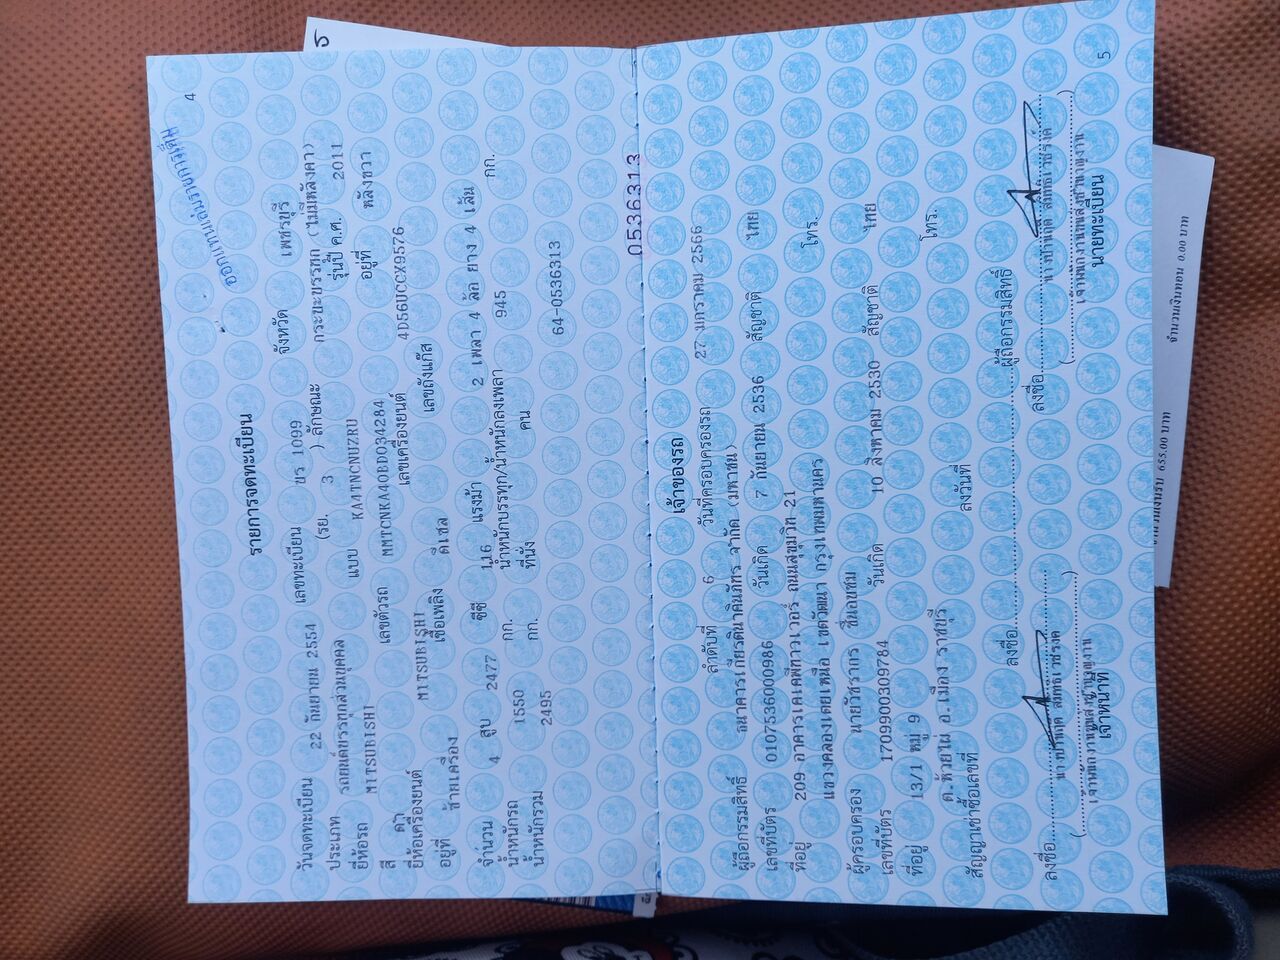 4
ออกแทนเล่มรายการเต็ม
รายการจดทะเบียน
วันจดทะเบียน 22 กันยายน 2554 เลขทะเบียน ขร 1099 จังหวัด เพชรบุรี
ประเภท รถยนต์บรรทุกส่วนบุคคล (รย. 3 ) ลักษณะ กระบะบรรทุก (ไม่มีหลังคา)
ยี่ห้อรถ MITSUBISHI แบบ KA4TNCNUZRU รุ่นปี ค.ศ. 2011
สี ดำ เลขตัวรถ MMTCNKA40BD034284 อยู่ที่ หลังขวา
ยี่ห้อเครื่องยนต์ MITSUBISHI เลขเครื่องยนต์ 4D56UCCX9576
อยู่ที่ ซ้ายเครื่อง เชื้อเพลิง ดีเซล เลขถังแก๊ส
จำนวน 4 สูบ 2477 ซีซี 116 แรงม้า 2 เพลา 4 ล้อ ยาง 4 เส้น
น้ำหนักรถ 1550 กก. น้ำหนักบรรทุก/น้ำหนักลงเพลา 945 กก.
น้ำหนักรวม 2495 กก. ที่นั่ง คน
64-0536313
0536313
เจ้าของรถ
ลำดับที่ 6 วันที่ครอบครองรถ 27 มกราคม 2566
ผู้ถือกรรมสิทธิ์ ธนาคารเกียรตินาคินภัทร จำกัด (มหาชน)
เลขที่บัตร 0107536000986 วันเกิด 7 กันยายน 2536 สัญชาติ ไทย
ที่อยู่ 209 อาคารเคเคพีทาวเวอร์ ถนนสุขุมวิท 21
แขวงคลองเตยเหนือ เขตวัฒนา กรุงเทพมหานคร โทร.
ผู้ครอบครอง นายวัชรากร ชื่นอบชม
เลขที่บัตร 1709900309784 วันเกิด 10 สิงหาคม 2530 สัญชาติ ไทย
ที่อยู่ 13/1 หมู่ 9
ต.ห้วยไผ่ อ.เมือง ราชบุรี โทร.
สัญญาเช่าซื้อเลขที่ ลงวันที่
ลงชื่อ ผู้ถือกรรมสิทธิ์
ลงชื่อ ลงชื่อ
เจ้าหน้าที่ นายทะเบียน
5
จำนวนเงินรับ 655.00 บาท จำนวนเงินทอน 0.00 บาท